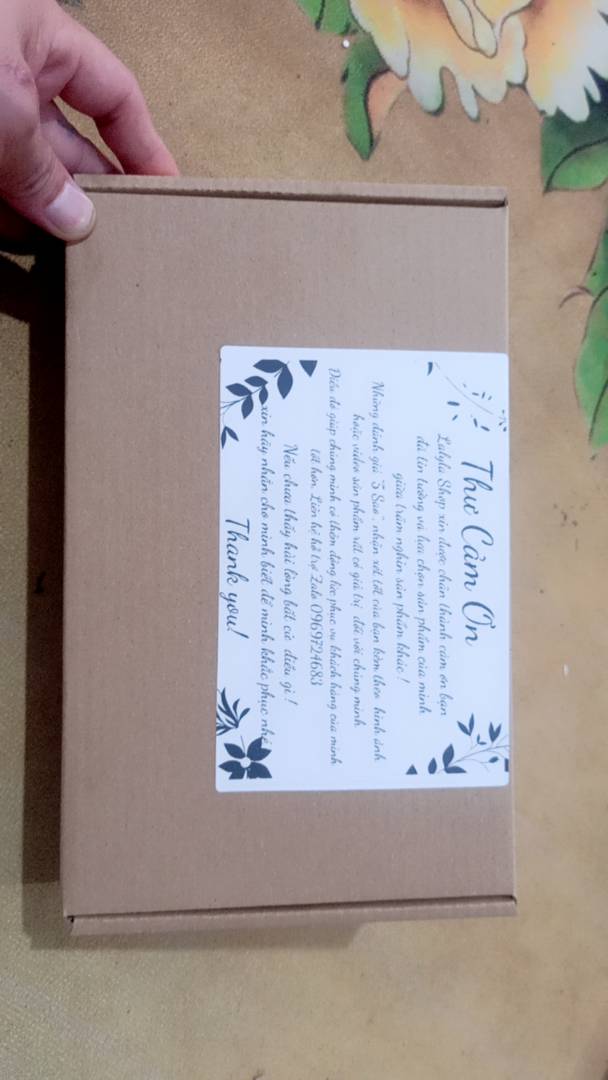 Thư Cảm Ơn
Lalyla Shop xin được chân thành cảm ơn bạn
đã tin tưởng và lựa chọn sản phẩm của mình
giữa trăm nghìn sản phẩm khác !
Những đánh giá "5 Sao", nhận xét tốt của bạn kèm theo hình ảnh
hoặc video sản phẩm rất có giá trị đối với chúng mình.
Điều đó giúp chúng mình có thêm động lực phục vụ khách hàng của mình
tốt hơn. Liên hệ hỗ trợ Zalo 0969724683
Nếu chưa thấy hài lòng bất cứ điều gì !
xin hãy nhắn cho mình biết để mình khắc phục nhé
Thank you!